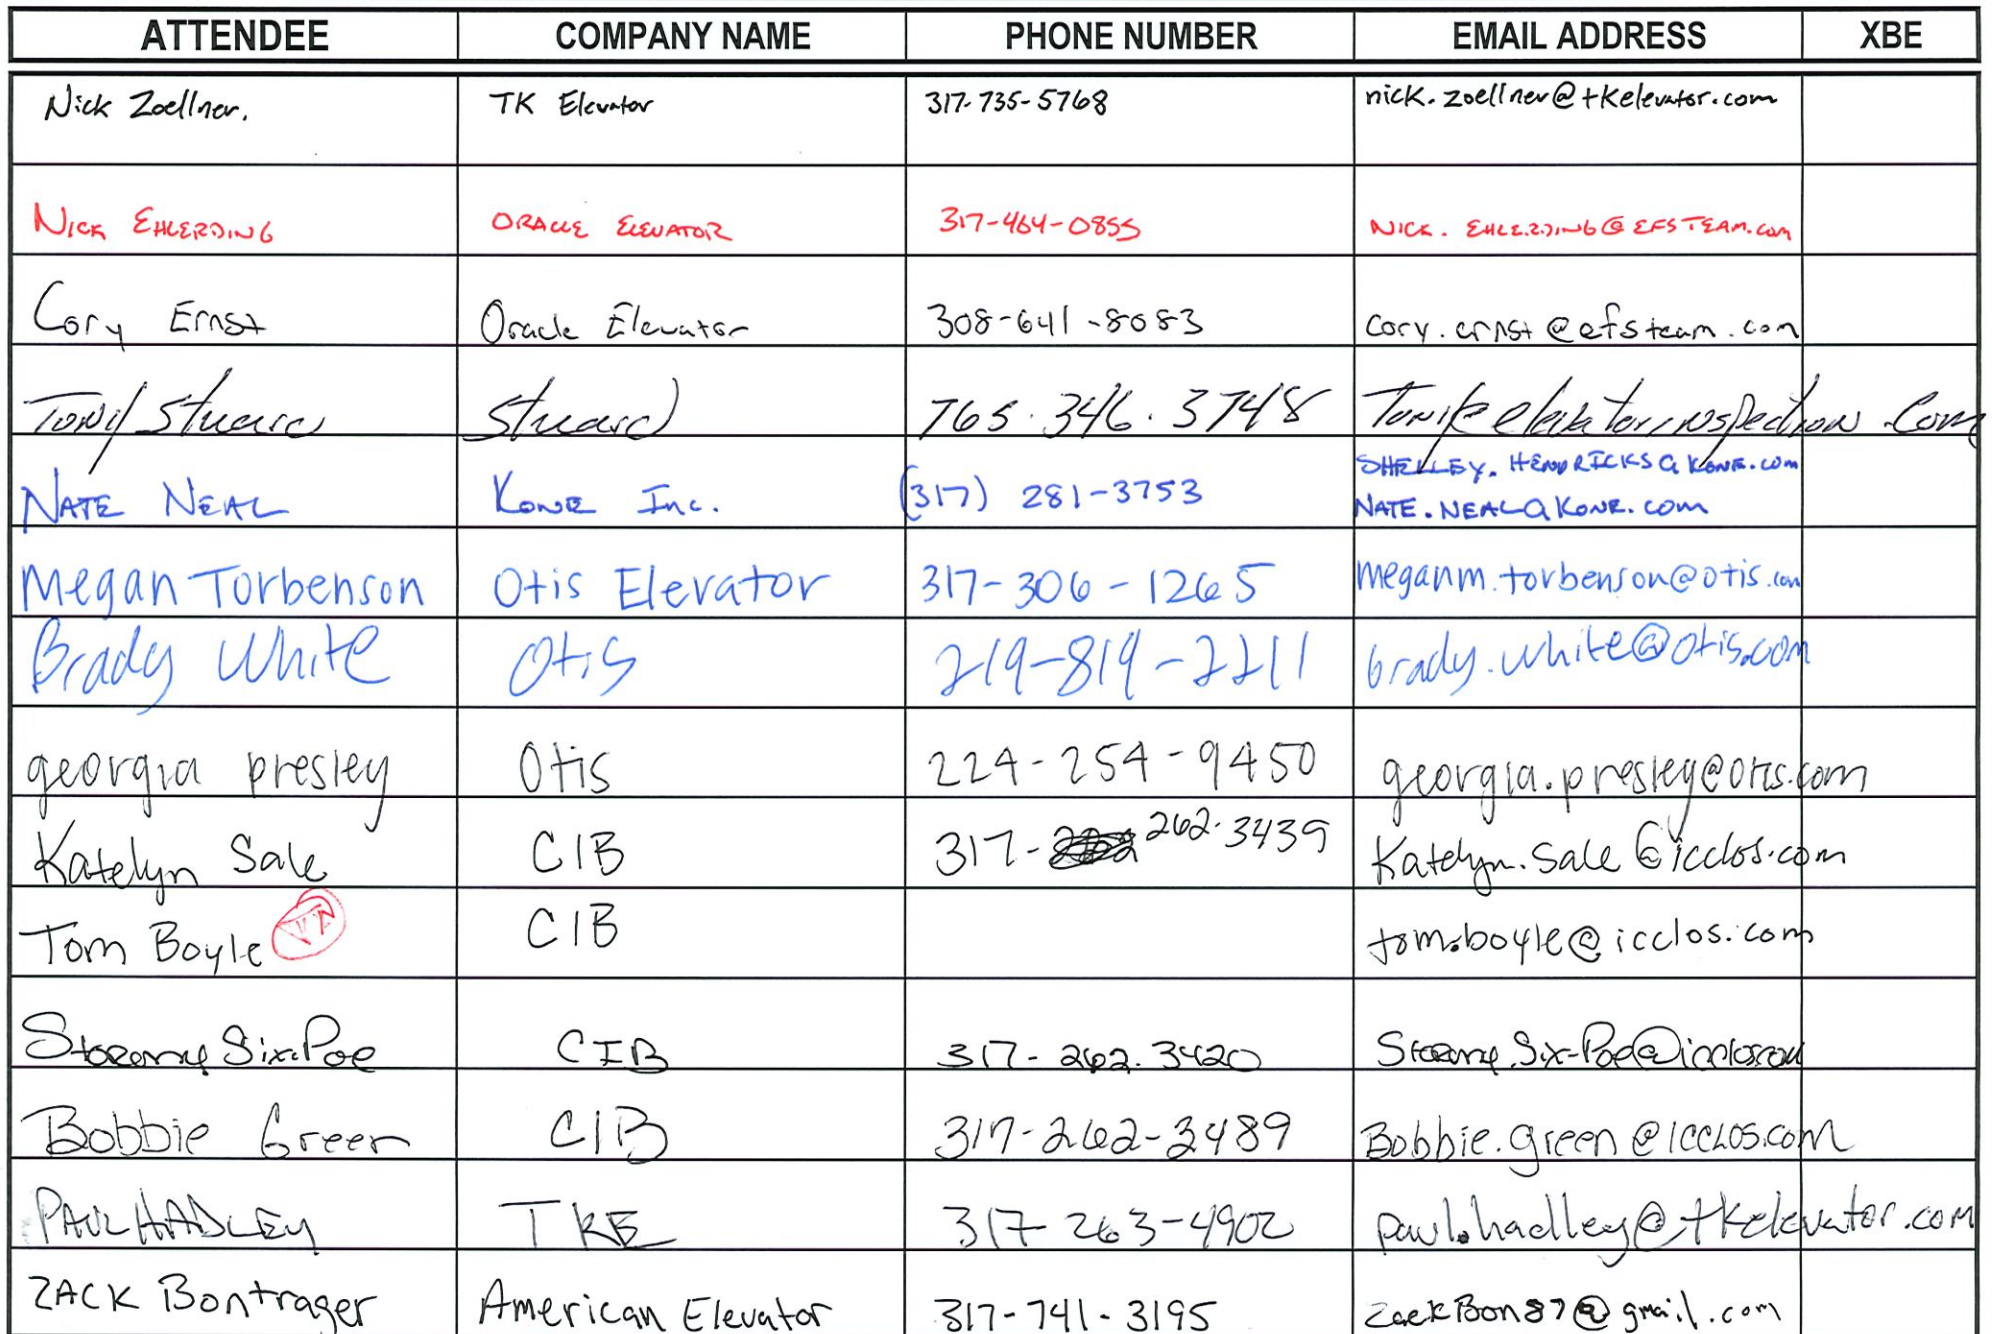 ATTENDEE COMPANY NAME PHONE NUMBER EMAIL ADDRESS XBE
Nick Zoellner. TK Elevator 317-735-5768 nick.zoellner@tkelevator.com
NICK EHLERDING ORACLE ELEVATOR 317-464-0855 NICK.EHLERDING@EFSTEAM.com
Cory Ernst Oracle Elevator 308-641-8083 cory.ernst@efsteam.com
Tony Stuard Stuard 765.346.3748
SHELLEY.HENDRICKS@KONE.com
NATE NEAL KONE Inc. (317) 281-3753 NATE.NEAL@KONE.com
Megan Torbenson Otis Elevator 317-306-1265 meganm.torbenson@otis.com
Brady White Otis 219-819-2211 brady.white@otis.com
georgia presley Otis 224-254-9450 georgia.presley@otis.com
Katelyn Sale CIB 317-262.3439 Katelyn.Sale@icclos.com
Tom Boyle CIB tom.boyle@icclos.com
Stormy Six-Poe CIB 317-262.3420 Stormy.Six-Poe@icclos.com
Bobbie Green CIB 317-262-3489 Bobbie.green@ICCLOS.com
PAUL HADLEY TKE 317-263-4902 paul.hadley@tkelevator.com
ZACK Bontrager American Elevator 317-741-3195 ZackBon87@gmail.com